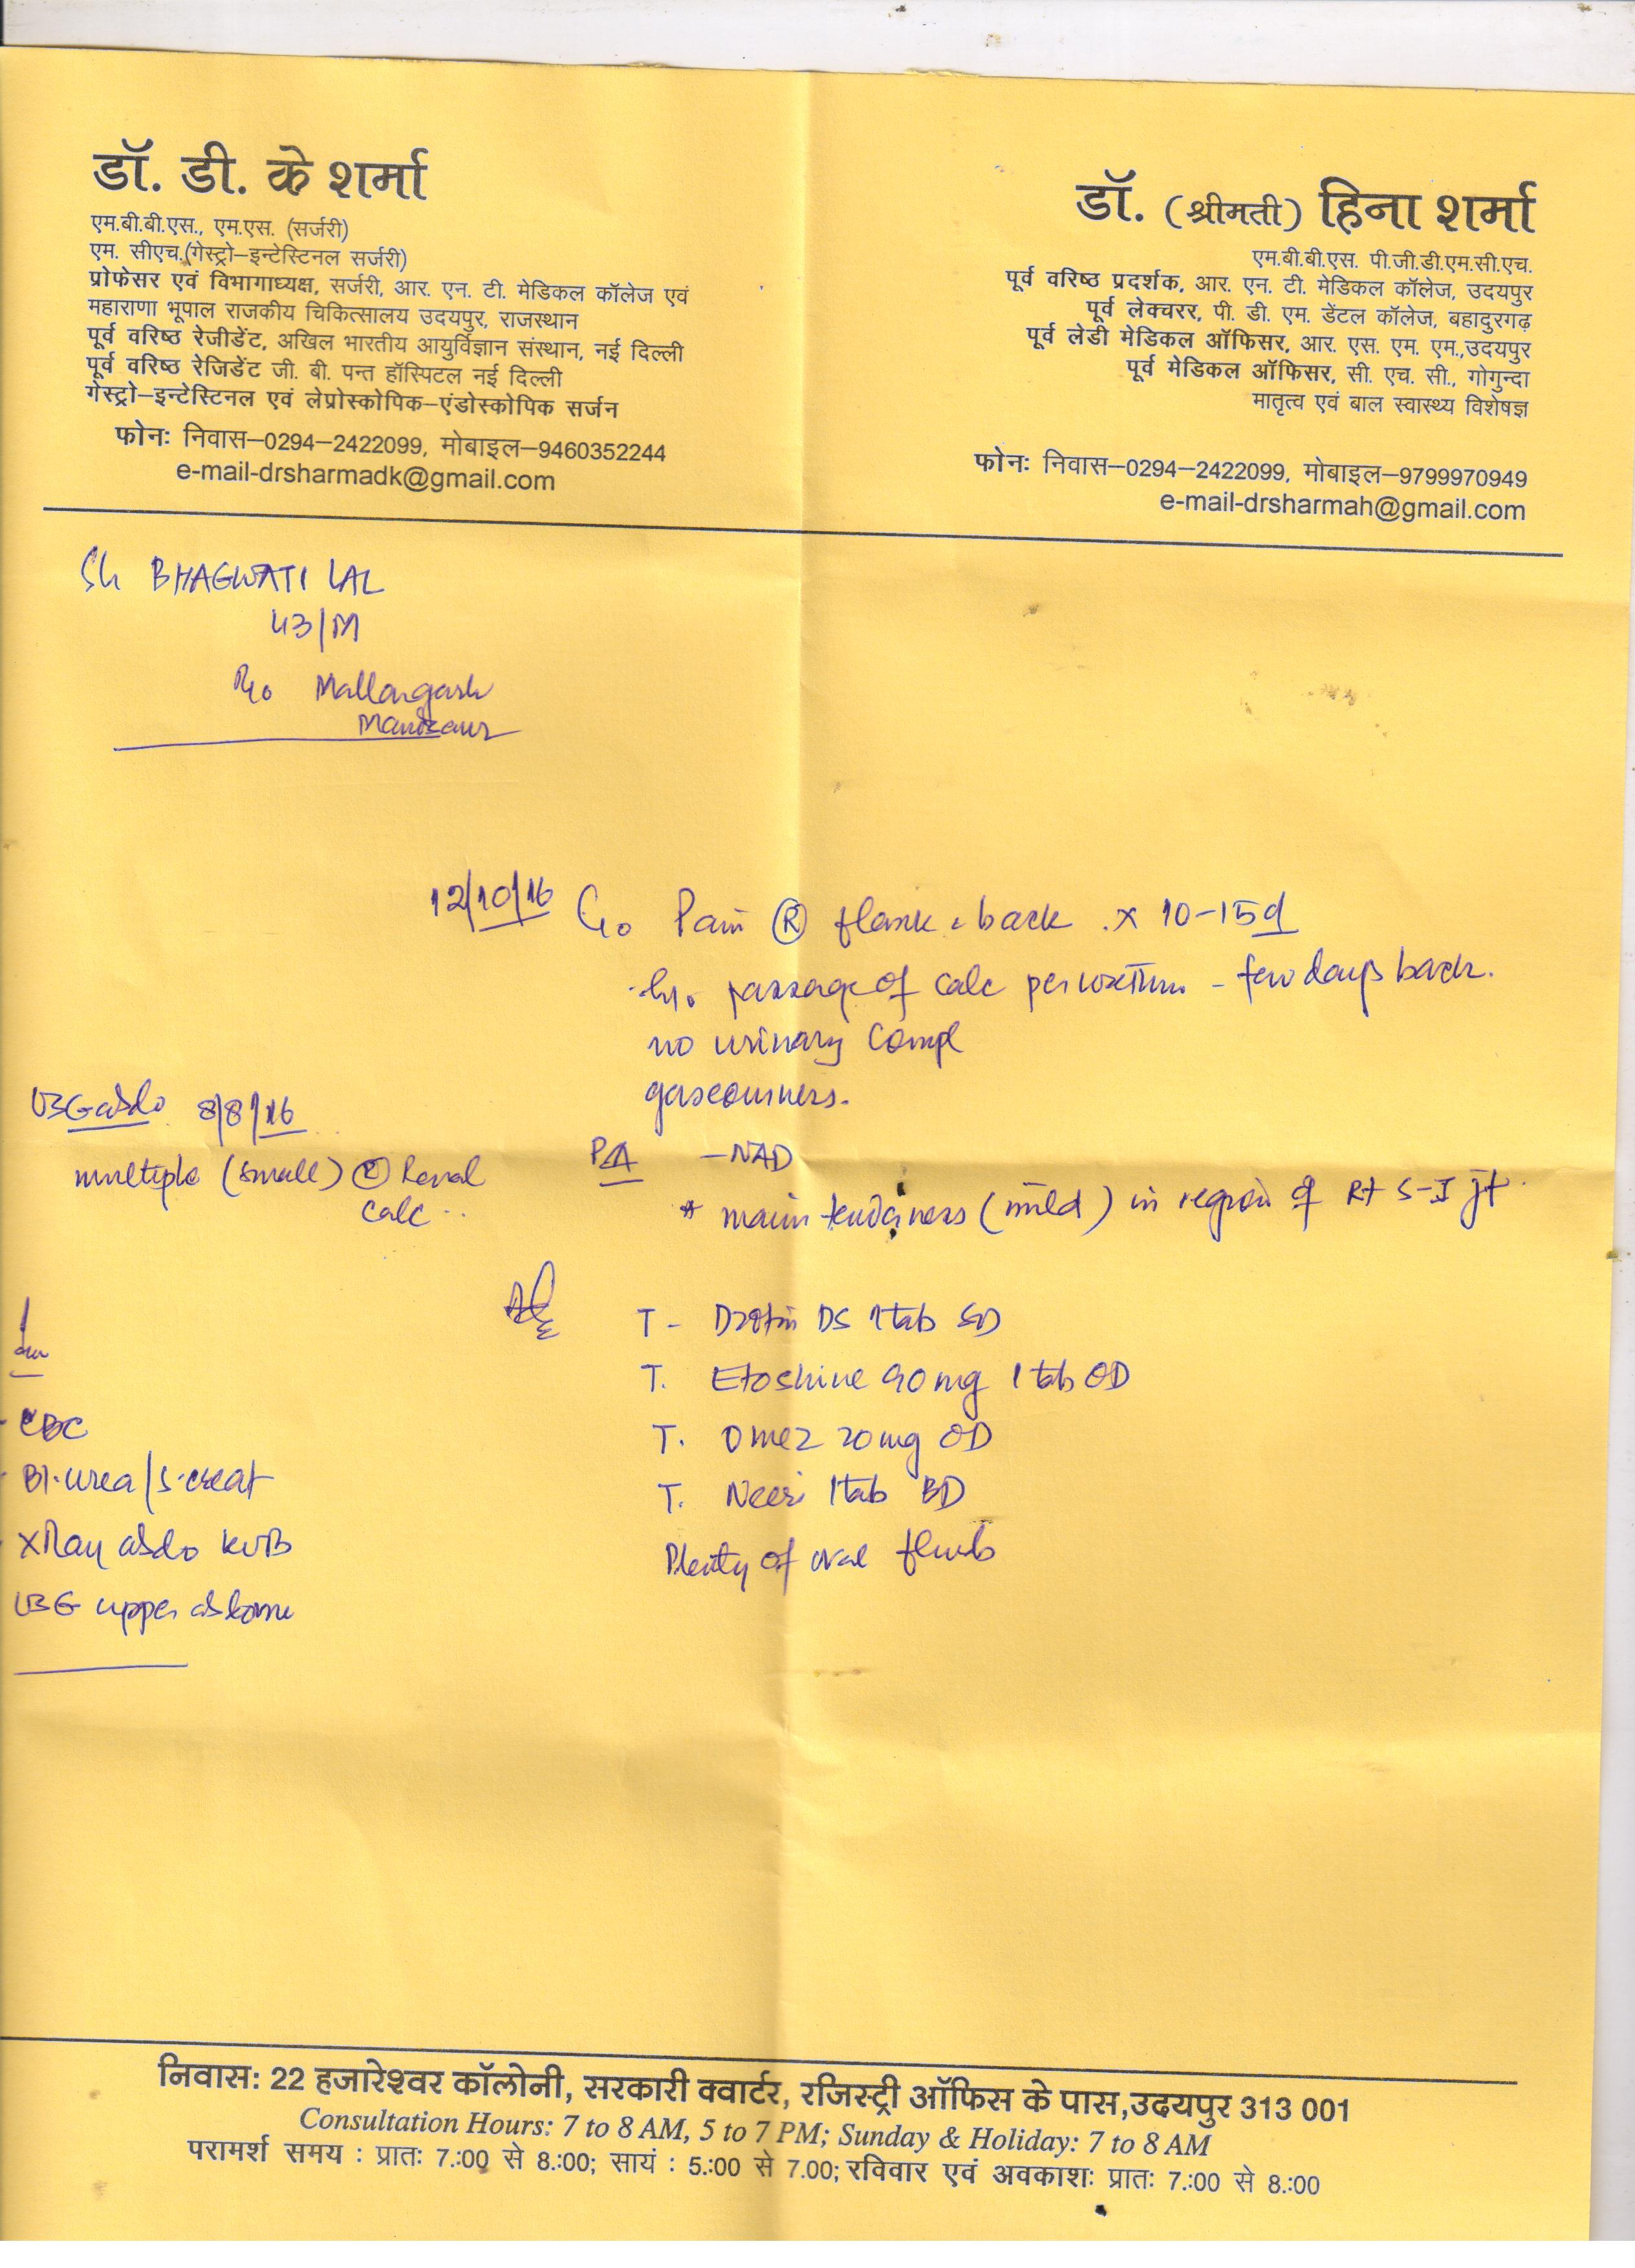 डॉ. डी. के शर्मा
एम.बी.बी.एस., एम.एस. (सर्जरी)
एम. सीएच.(गेस्ट्रो–इन्टेस्टिनल सर्जरी)
प्रोफेसर एवं विभागाध्यक्ष, सर्जरी, आर. एन. टी. मेडिकल कॉलेज एवं
महाराणा भूपाल राजकीय चिकित्सालय उदयपुर, राजस्थान
पूर्व वरिष्ठ रेजीडेंट, अखिल भारतीय आयुर्विज्ञान संस्थान, नई दिल्ली
पूर्व वरिष्ठ रेजिडेंट जी. बी. पन्त हॉस्पिटल नई दिल्ली
गेस्ट्रो–इन्टेस्टिनल एवं लेप्रोस्कोपिक–एंडोस्कोपिक सर्जन
फोनः निवास–0294–2422099, मोबाइल–9460352244
e-mail-drsharmadk@gmail.com
डॉ. (श्रीमती) हिना शर्मा
एम.बी.बी.एस. पी.जी.डी.एम.सी.एच.
पूर्व वरिष्ठ प्रदर्शक, आर. एन. टी. मेडिकल कॉलेज, उदयपुर
पूर्व लेक्चरर, पी. डी. एम. डेंटल कॉलेज, बहादुरगढ़
पूर्व लेडी मेडिकल ऑफिसर, आर. एस. एम. एम.,उदयपुर
पूर्व मेडिकल ऑफिसर, सी. एच. सी., गोगुन्दा
मातृत्व एवं बाल स्वास्थ्य विशेषज्ञ
फोनः निवास–0294–2422099, मोबाइल–9799970949
e-mail-drsharmah@gmail.com
Sh BHAGWATI LAL
43/M
R/o Mallargarh
Mandsaur
12/10/16 C/o Pain (R) flank & back x 10-15d
h/o passage of calc per urethra - few days back.
no urinary compl
gaseousness.
USG abdo 8/8/16
multiple (small) (R) Renal
calc
P/A - NAD
* main tenderness (mild) in region of Rt S-I jt
T- DS 1tab SD
T. Etoshine 90mg 1 tab OD
T. Omez 20mg OD
T. Neeri 1tab BD
Plenty of oral fluids
CBC
Bl. urea/S. creat
XRay abdo KUB
USG upper abdome
निवासः 22 हजारेश्वर कॉलोनी, सरकारी क्वार्टर, रजिस्ट्री ऑफिस के पास,उदयपुर 313 001
Consultation Hours: 7 to 8 AM, 5 to 7 PM; Sunday & Holiday: 7 to 8 AM
परामर्श समय : प्रातः 7.:00 से 8.:00; सायं : 5.:00 से 7.00; रविवार एवं अवकाशः प्रातः 7.:00 से 8.:00